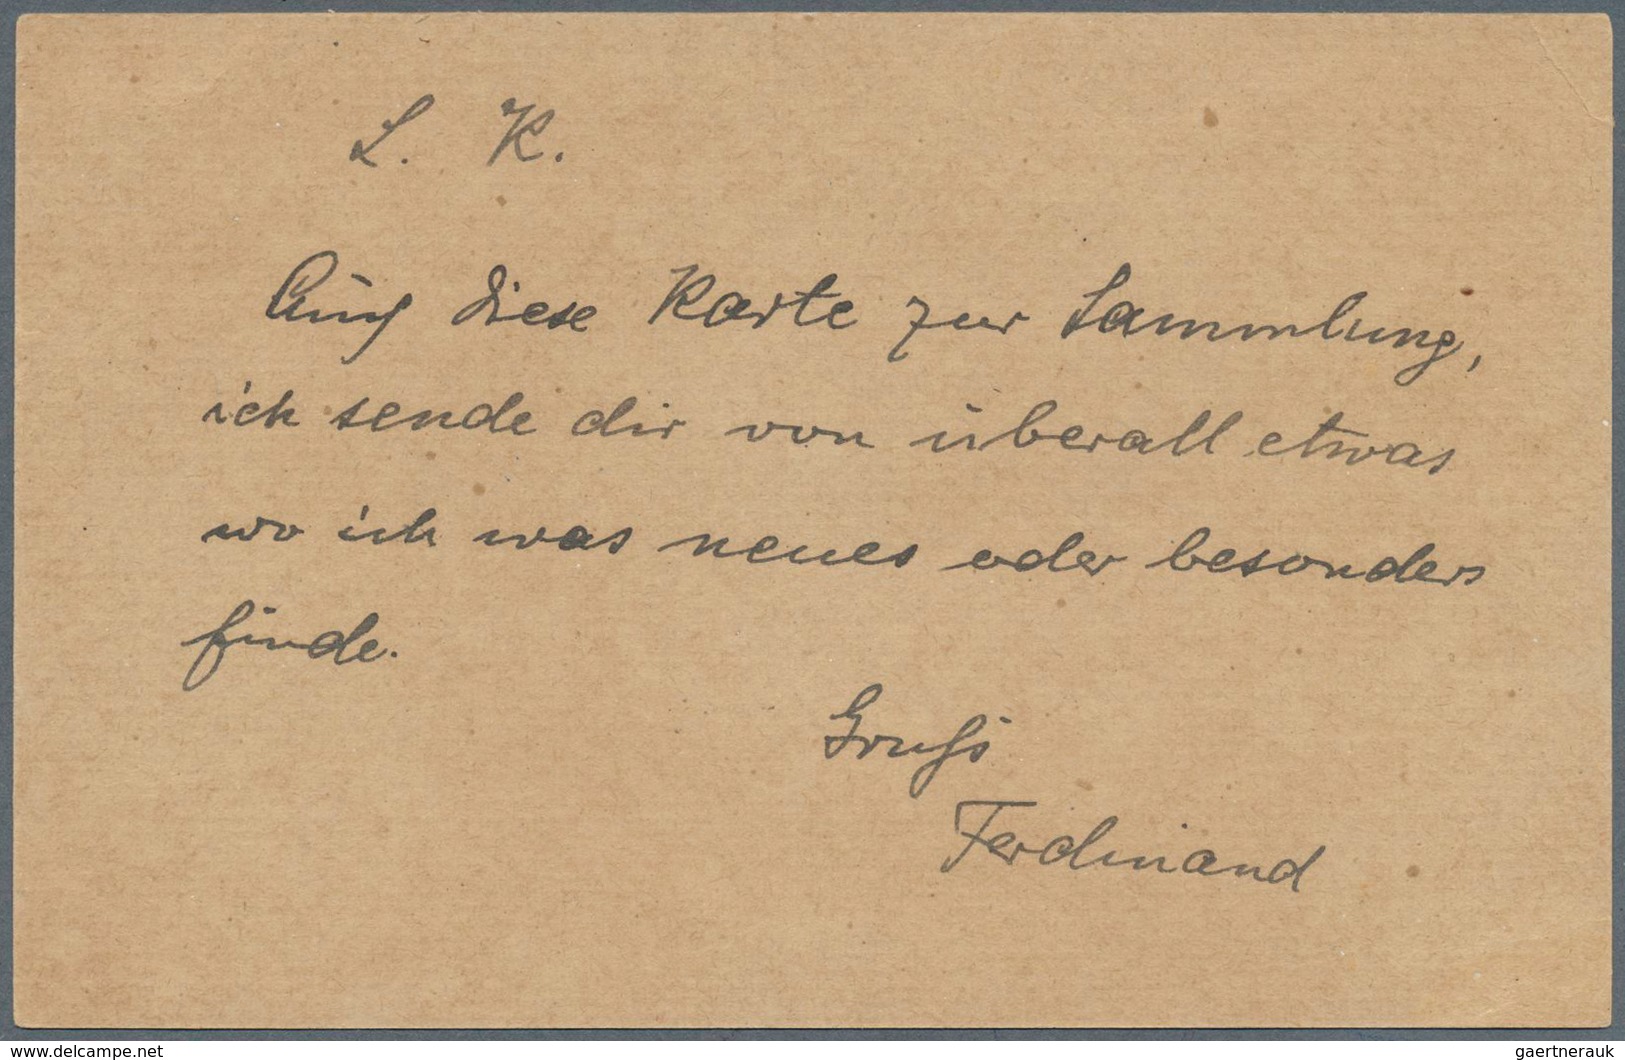 L. K.
Auch diese Karte zur Sammlung,
ich sende dir von überall etwas
wo ich was neues oder besonders
finde.
Gruß
Ferdinand
www.delcampe.net
gaertnerauk